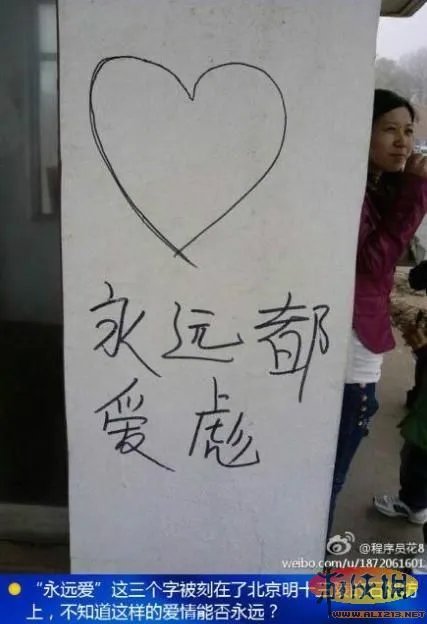 永远都
爱彪
@程序员花8
weibo.com/u/1872061601
“永远爱”这三个字被刻在了北京明十三
上，不知道这样的爱情能否永远？
www.ali213.net